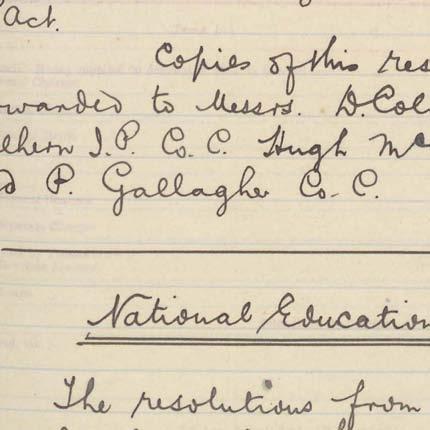 Act.
Copies of this res
rwarded to Messrs. D. Col
lhern J.P. Co. C. Hugh Mc
d P. Gallagher Co. C.
National Education
The resolutions from